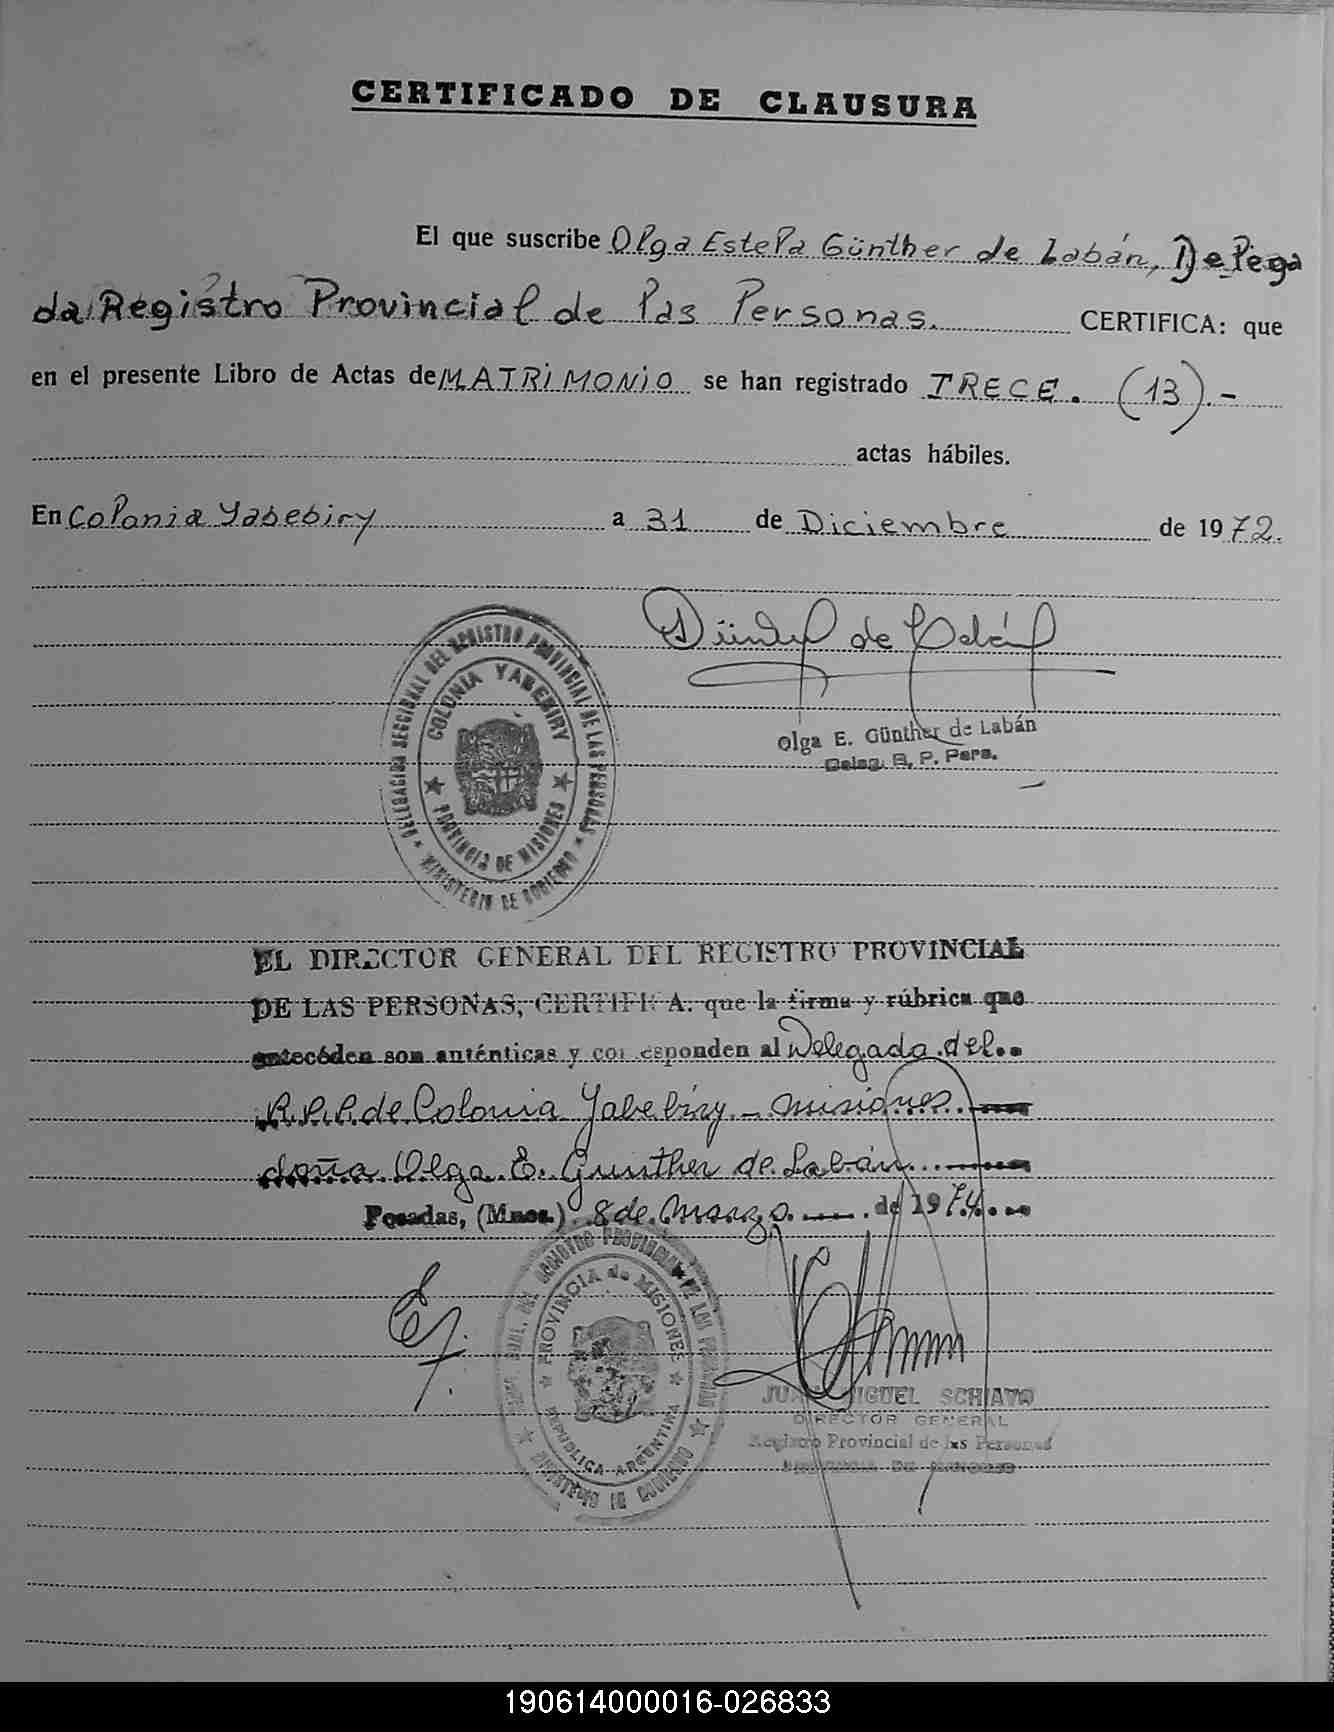 CERTIFICADO DE CLAUSURA
El que suscribe Olga Estela Günther de Labán, Delega
da Registro Provincial de las Personas. CERTIFICA: que
en el presente Libro de Actas de MATRIMONIO se han registrado TRECE. (13).-
actas hábiles.
En Colonia Yabebiry a 31 de Diciembre de 1972.
Günther de Labán
Olga E. Günther de Labán
Deleg. R. P. Pers.
DELEGACION SECCIONAL DEL REGISTRO PROVINCIAL DE LAS PERSONAS
COLONIA YABEBIRY
PROVINCIA DE MISIONES
MINISTERIO DE GOBIERNO
EL DIRECTOR GENERAL DEL REGISTRO PROVINCIAL
DE LAS PERSONAS, CERTIFICA: que la firma y rúbrica que
anteceden son auténticas y corresponden al Delegada del..
R.P.P. de Colonia Yabebiry - Misiones
doña Olga E. Gunther de Labán
Posadas, (Mnes.) 8 de Marzo de 1974
PROVINCIA de MISIONES
REPUBLICA ARGENTINA
MINISTERIO DE GOBIERNO
JUAN MIGUEL SCHIAVO
DIRECTOR GENERAL
Registro Provincial de las Personas
PROVINCIA DE MISIONES
190614000016-026833